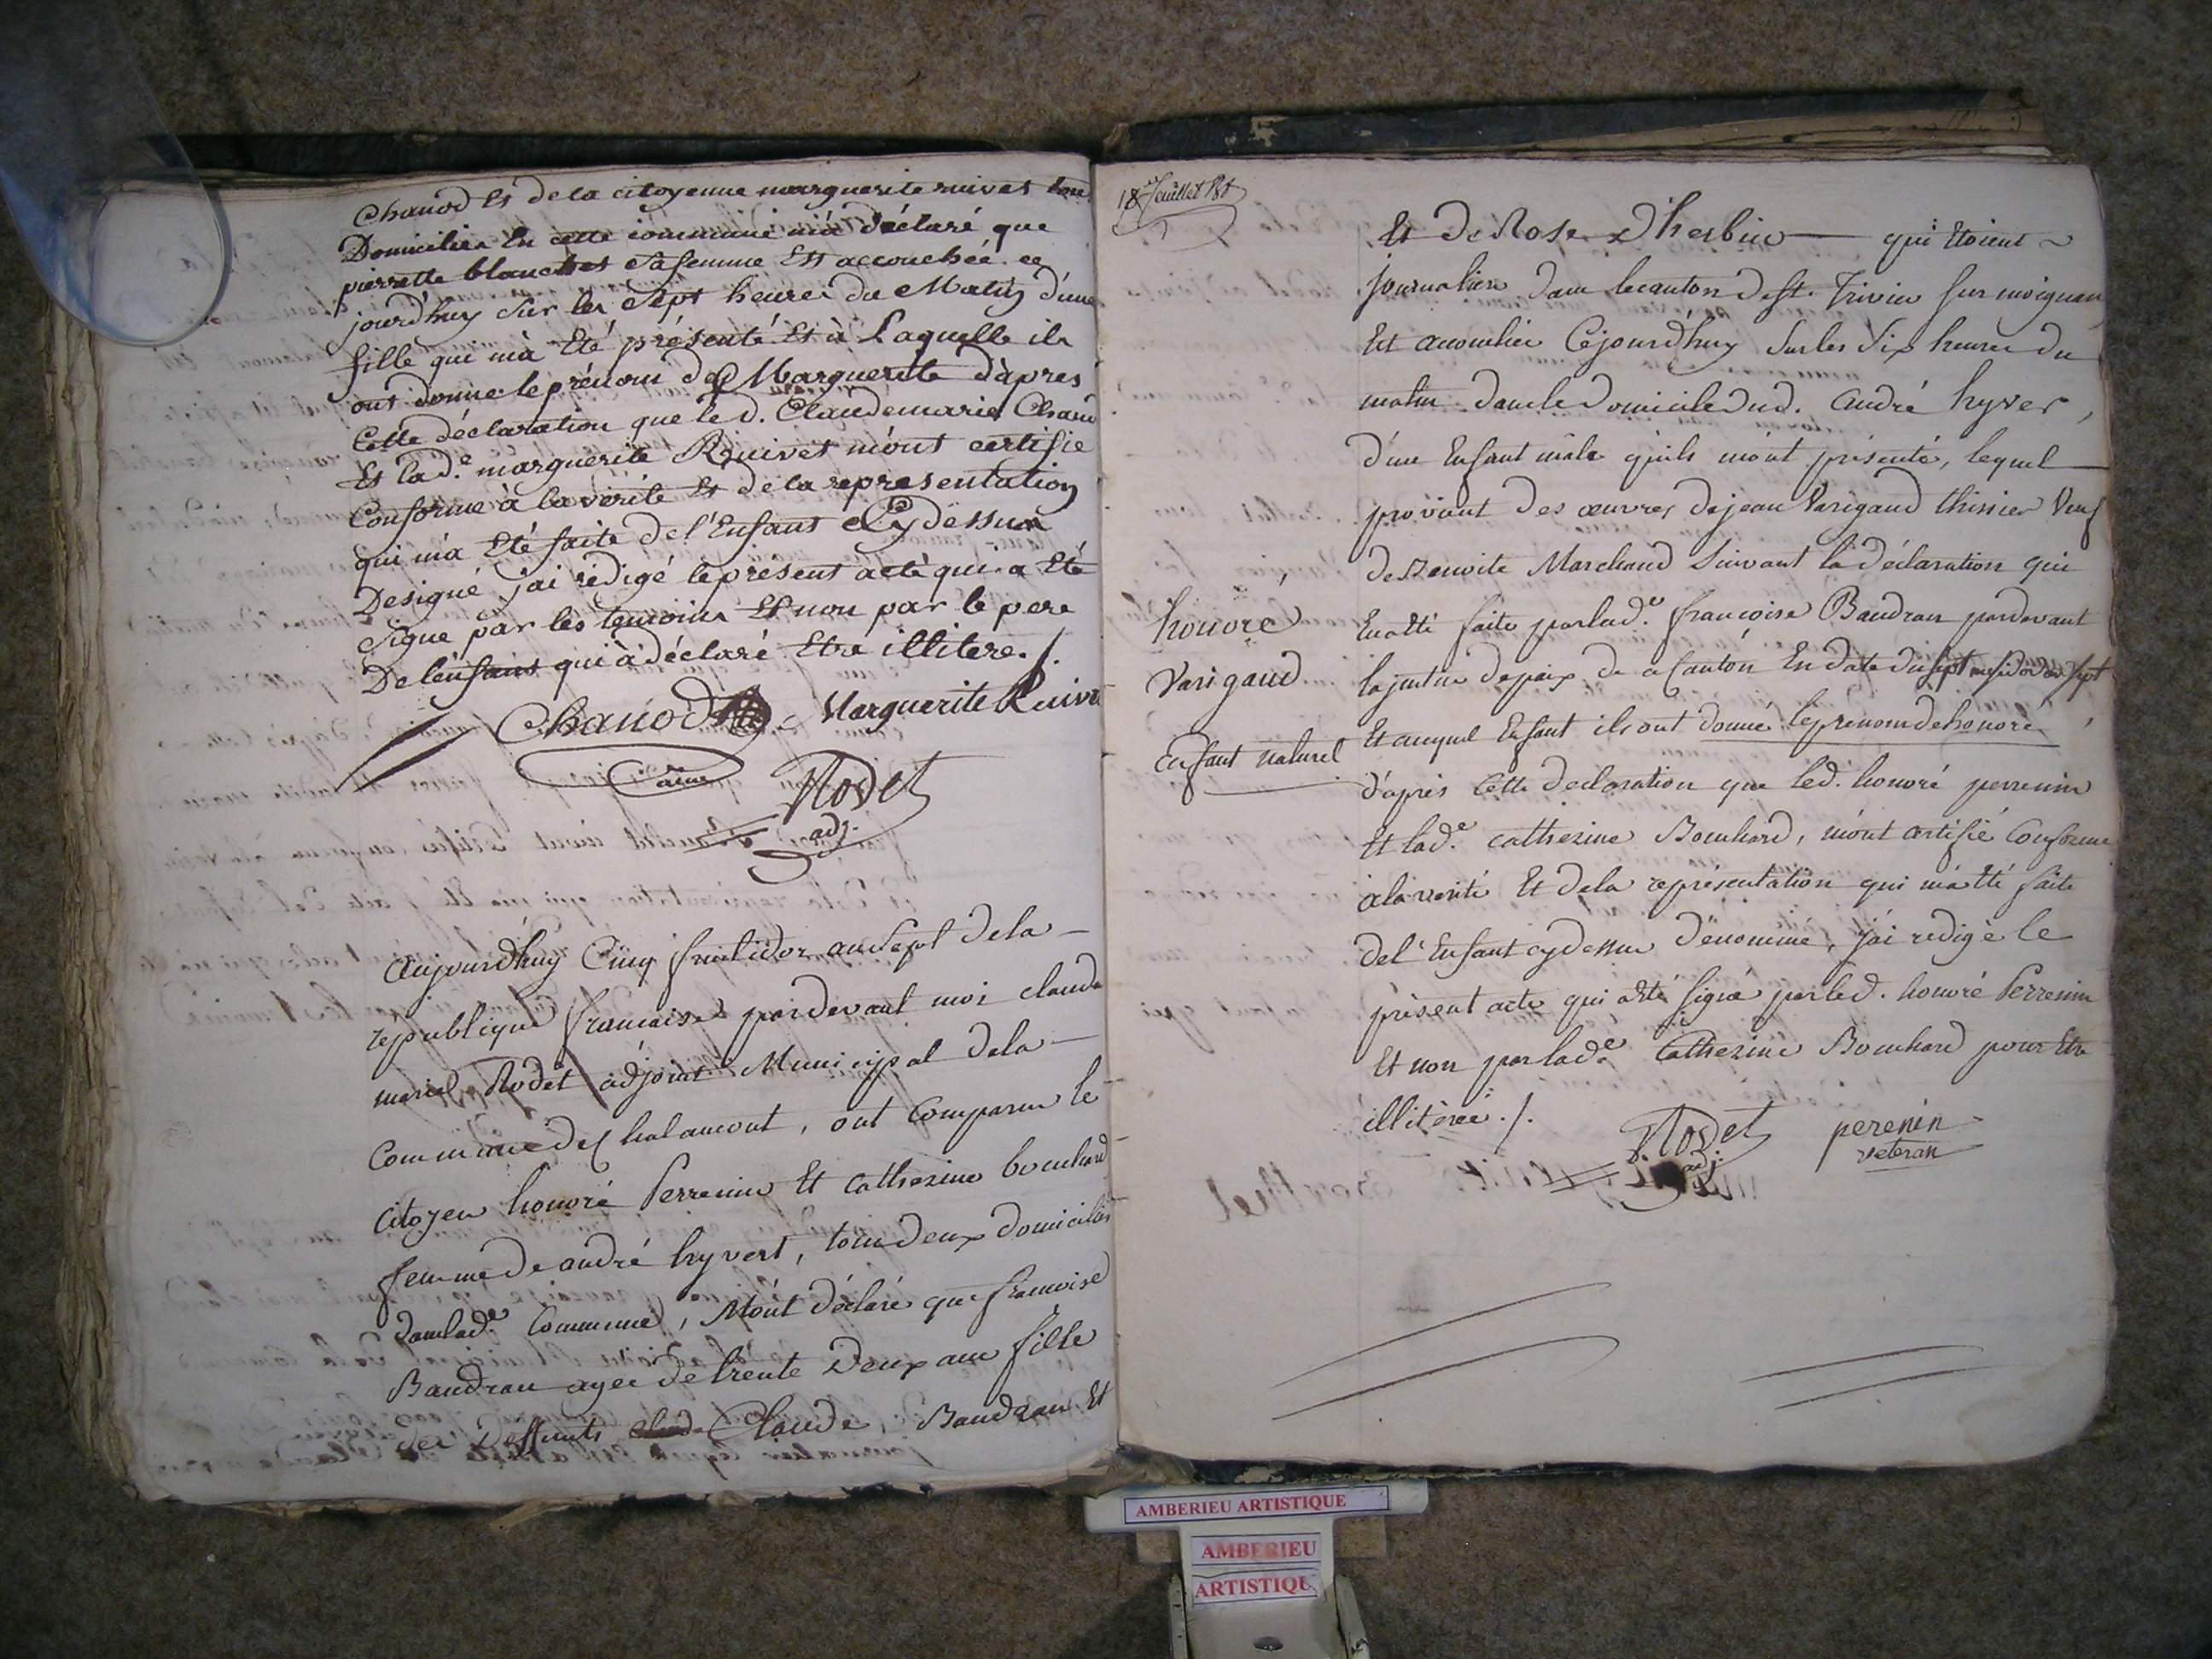 Chanod Et de la citoyenne marguerite ruivet tous
Domicilies En cette commune m'a déclaré que
pierrette blanchet Sa femme Est accouchée ce
jourd'huy Sur les Sept heures du Matin d'une
fille qui m'a Eté présenté Et à Laquelle ils
ont donné le prénom de Marguerite d'après
Cette déclaration que le d. Claude marie Chanod
Et la d.e marguerite Ruivet m'ont certifié
Conforme à la vérité Et de la representation
qui m'a Eté faite de l'Enfant Cy dessus
Designé j'ai rédigé le présent acte qui a Eté
Signé par les temoins Et non par le pere
De l'enfant qui à déclaré Etre illitére ./.
Chanod Marguerite Ruivet
Rodet
adj.
aujourd'huy Cinq fructidor an Sept de la
republique francaise pardevant moi claude
marie Rodet adjoint Municipal de la
Commune de Chalamont, ont Comparu le
Citoyen honoré Perrenin Et Catherine bouchard
femme de andré hyvert, tous deux domiciliés
dans lad.e Commune, M'ont déclaré que francoise
Baudran agée de trente Deux ans fille
des Deffunts Claude Baudran Et
18.e feuillet Rt
Et De Rose Dherbin qui Etoient
journaliers dans le canton de St. Trivier sur moignans
Est accouchée Cejourd'huy Sur les Six heures du
matin dans le Domicile du d. andré hyver,
d'un Enfant mâle qu'ils m'ont présenté, lequel
provient des œuvres de jean Varigaud thissier Veuf
de Benoite Marchand Suivant la déclaration qui
En a Eté faite par lad.e francoise Baudran pardevant
la justice de paix de ce Canton En date du sept messidor an sept
Et auquel Enfant ils ont donné le prenom de honoré
honoré
Varigaud
Enfant naturel
d'après Cette declaration que led. honoré perrenin
Et lad.e catherine Bouchard, m'ont certifié Conforme
à la verité Et de la représentation qui m'a Eté faite
de l'Enfant cy dessus dénommé, j'ai redigé le
présent acte qui a Eté signé par led. honoré Perrenin
Et non par lad.e Catherine Bouchard pour Etre
illitérée ./.
Rodet perenin
adj. veteran
AMBERIEU ARTISTIQUE
AMBERIEU
ARTISTIQU